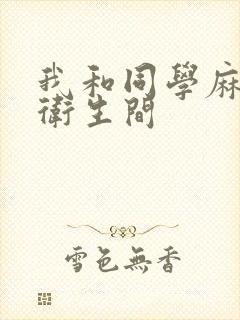 我和同學麻
衛生間
雪色無香